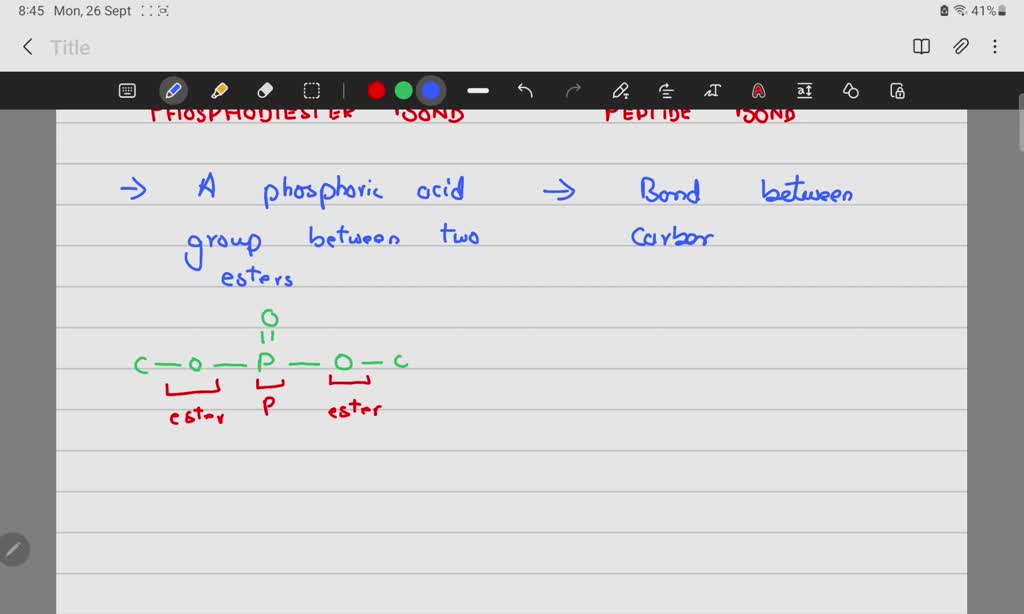 8:45 Mon, 26 Sept 41%
Title
PHOSPHODIESTER BOND PEPTIDE BOND
→ A phosphoric acid → Bond between
group between two carbon
esters
O
C — O — P — O — C
ester P ester